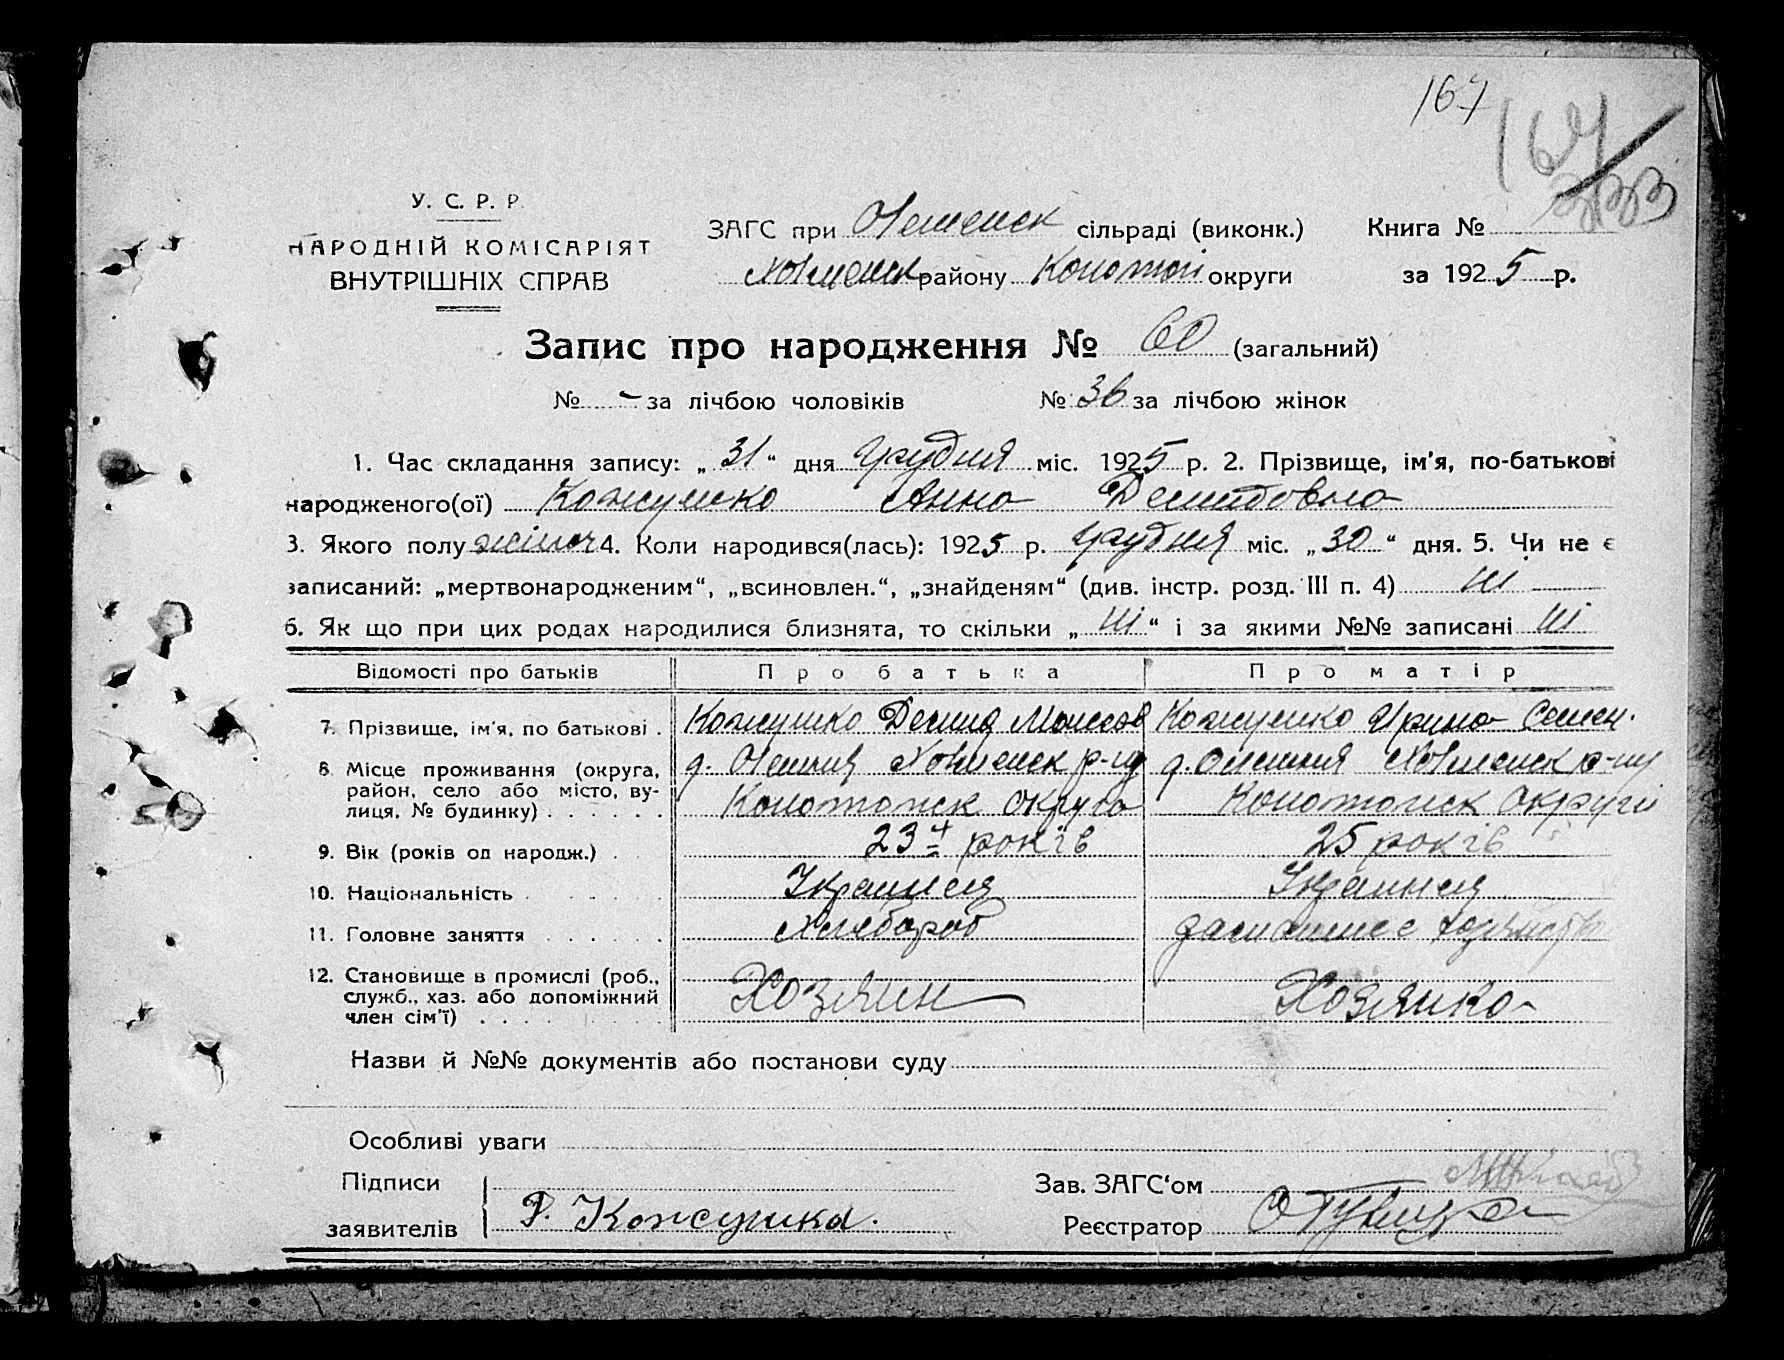 167
167
333
У. С. Р. Р.
НАРОДНІЙ КОМІСАРІЯТ
ВНУТРІШНІХ СПРАВ
ЗАГС при сільраді (виконк.) Книга №
району Конотоп округи за 1925 р.
Запис про народження № 60 (загальний)
№ - за лічбою чоловіків № 36 за лічбою жінок
1. Час складання запису: „31“ дня Грудня міс. 1925 р. 2. Прізвище, ім'я, по-батькові
народженого(ої) Кожушко Анна Демидовна
3. Якого полу жіноч 4. Коли народився(лась): 1925 р. Грудня міс. „30“ дня. 5. Чи не є
записаний: „мертвонародженим“, „всиновлен.“, „знайденям“ (див. інстр. розд. III п. 4) ні
6. Як що при цих родах народилися близнята, то скільки „ні“ і за якими №№ записані ні
Відомості про батьків Про батька Про матір
7. Прізвище, ім'я, по батькові . Кожушко Демид Моисеев Кожушко Ирина Семен.
8. Місце проживання (округа, район, село або місто, вулиця, № будинку) . . . . . .
Конотопск округа Конотопск Округи
9. Вік (років од народж.) . 23 років 25 років
10. Національність . . . . . Украинец Украинця
11. Головне заняття . . . . . Хлебороб
12. Становище в промислі (роб., служб., хаз. або допоміжний член сім'ї) . . . . Хозяин Хозяйка
Назви й №№ документів або постанови суду
Особливі уваги
Підписи
заявителів Кожушка.
Зав. ЗАГС‘ом
Реєстратор